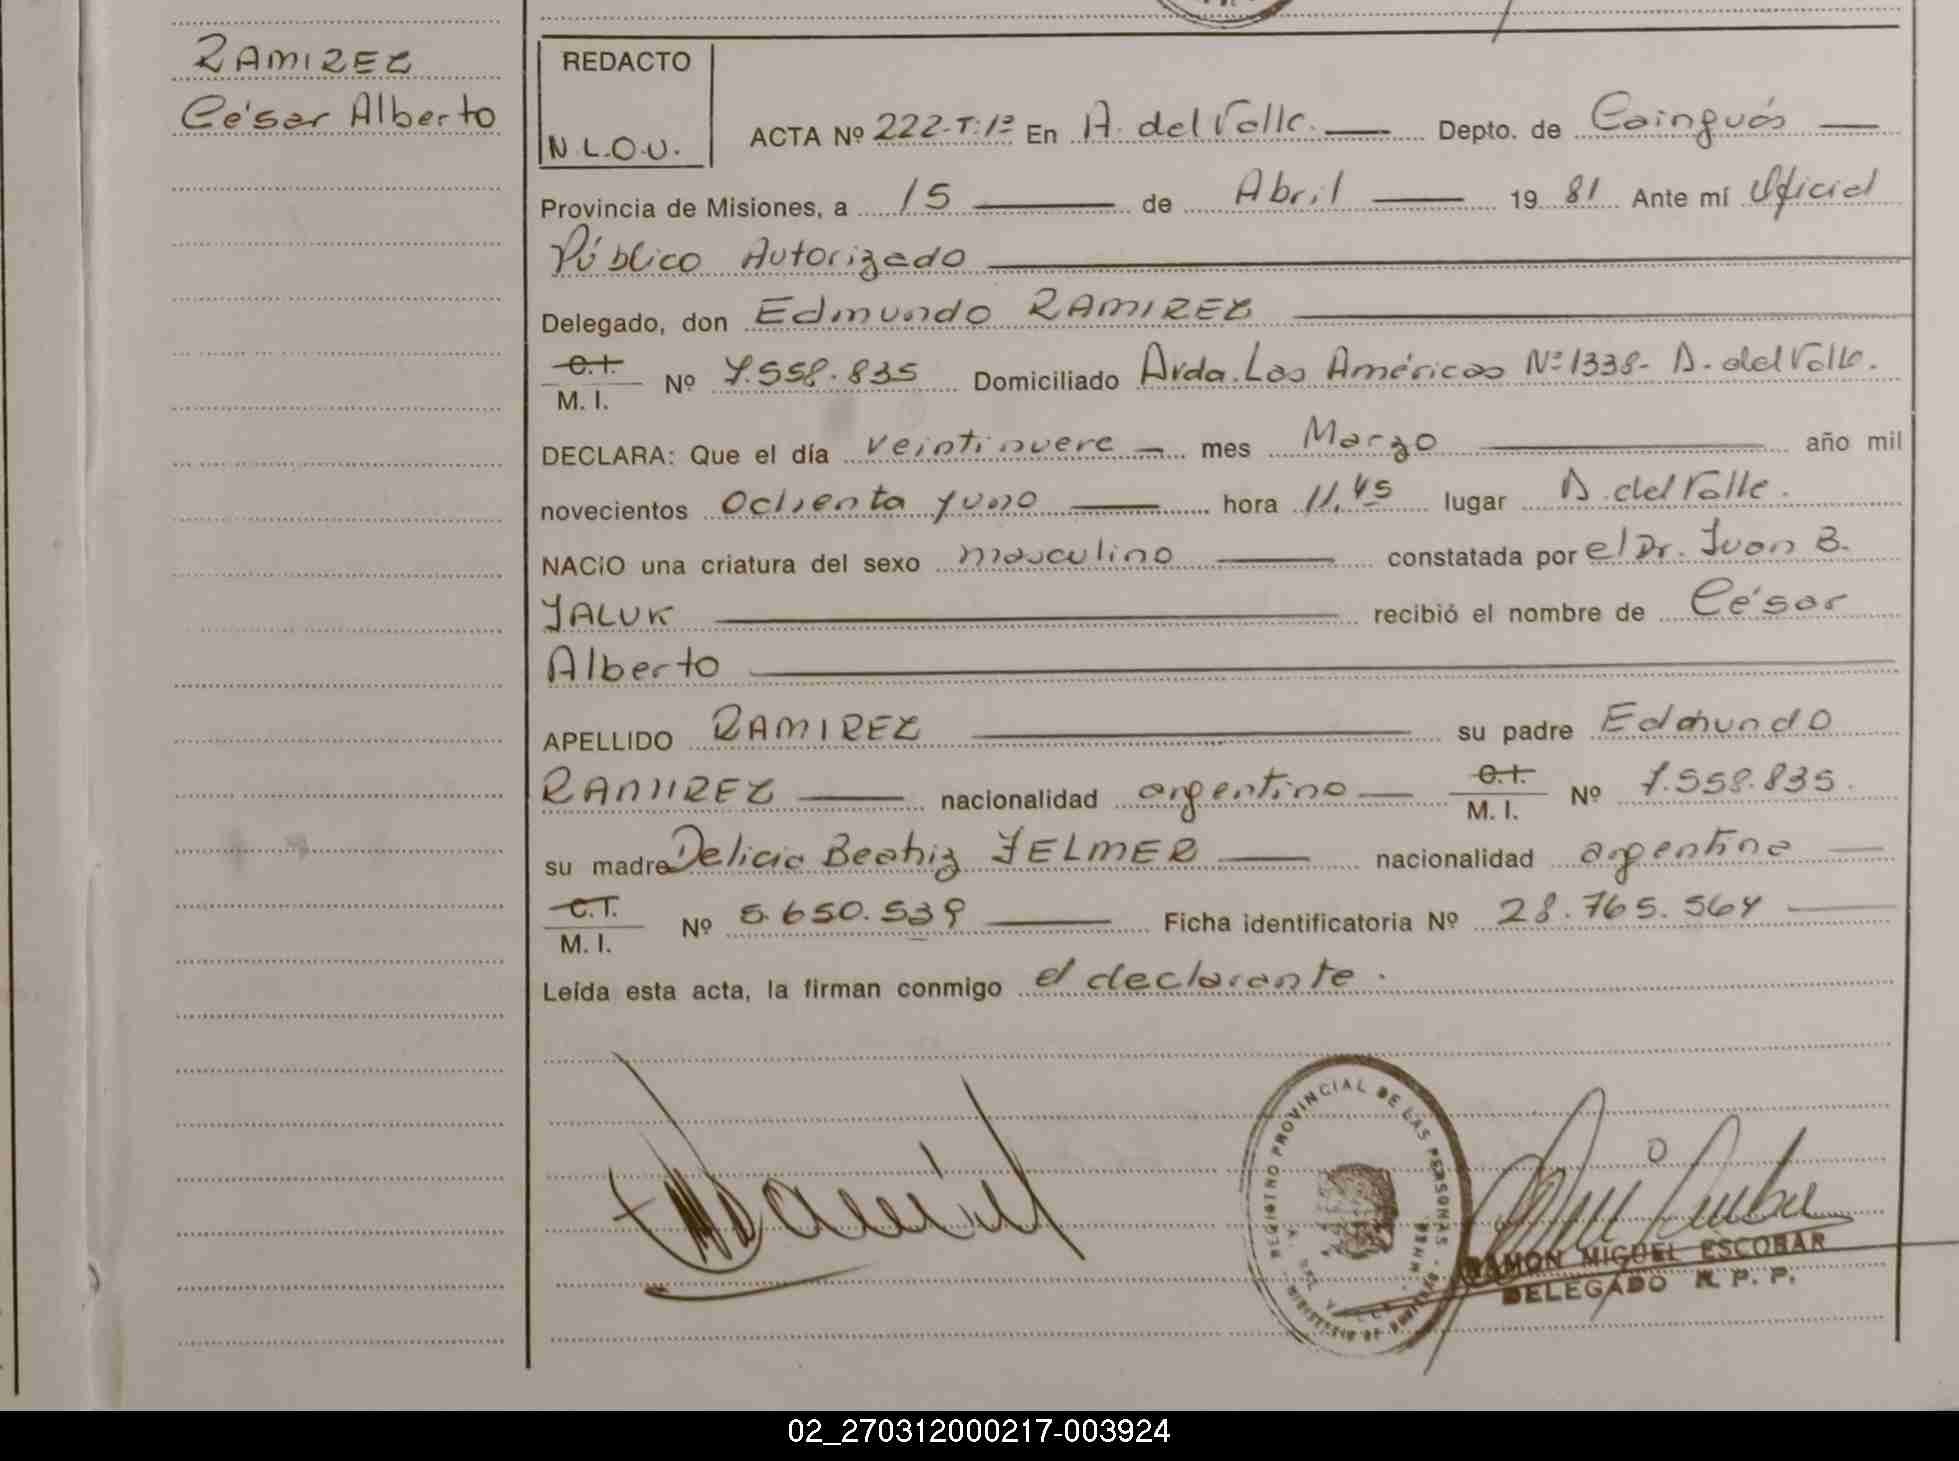 RAMIREZ
César Alberto
REDACTO
N.L.O.U.
ACTA Nº 222-T:1º En A. del Valle. Depto. de Cainguás
Provincia de Misiones, a 15 de Abril 19 81 Ante mí Oficial
Público Autorizado
Delegado, don Edmundo RAMIREZ
C.I.
M. I. Nº 7.558.835 Domiciliado Avda. Las Américas Nº 1338- A. del Valle.
DECLARA: Que el día veintinueve mes Marzo año mil
novecientos Ochenta y uno hora 11,45 lugar A. del Valle.
NACIO una criatura del sexo masculino constatada por el Dr. Juan B.
YALUK recibió el nombre de César
Alberto
APELLIDO RAMIREZ su padre Edmundo
RAMIREZ nacionalidad argentino C.I.
M. I. Nº 7.558.835.
su madre Delicia Beatriz YELMER nacionalidad argentina
C.I.
M. I. Nº 5.650.539 Ficha identificatoria Nº 28.765.564
Leída esta acta, la firman conmigo el declarante.
REGISTRO PROVINCIAL DE LAS PERSONAS
RAMON MIGUEL ESCOBAR
DELEGADO R. P. P.
02_270312000217-003924